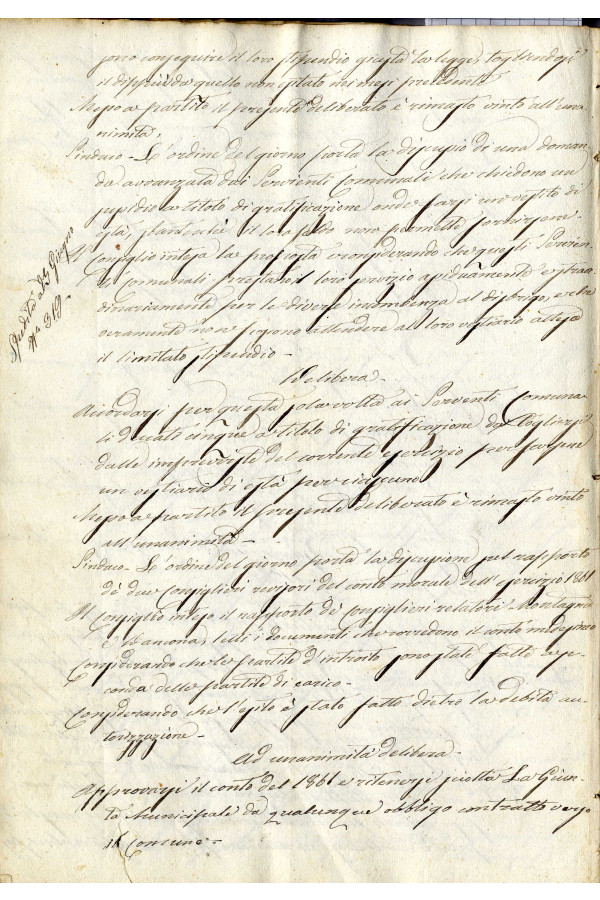 sono conseguire il loro stipendio giusta la legge, togliendosi
il dippiù da quello non esatto nei mesi precedenti
Messo a partito il presente deliberato è rimasto vinto all'una-
nimità,
Sindaco - L'ordine del giorno porta la discussione di una doman-
da avvanzata dai Serventi Comunali che chiedono un
sussidio a titolo di gratificazione onde farsi un vestito di
està, stanteché il loro soldo non permette
Il Consiglio intesa la proposta e considerando che quegli Serven-
ti Comunali prestano il loro servizio assiduamente e straor
dinariamente per le diverse incombenze al disbrigo, e che
veramente non possono attendere al loro vestiario attesa
il limitato stipendio -
Delibera -
Accordarsi per questa sola volta ai Serventi Comuna-
li Ducati cinque a titolo di gratificazione da togliersi
dalle impreviste del corrente esercizio per farsene
un vestiario di està per ciascuno
Messo a partito il presente deliberato è rimasto vinto
all'unanimità -
Sindaco - L'ordine del giorno porta la discussione sul rapporto
de' due Consiglieri revisori del conto morale dell'esercizio 1861
Il Consiglio inteso il rapporto de' Consiglieri relatori Montagna
e D'Ancona, letti i documenti che corredono il conto medesimo
Considerando che le partite d'introito sono state fatte a se-
conda delle partite di carico -
Considerando che l'esito è stato fatto dietro la debita au-
torizzazione -
Ad unanimità delibera -
Approvarsi il conto del 1861 e ritenersi sciolta la Giun-
ta Municipale da qualunque obbligo contratto verso
il Comune -
Spedita a dì Giugno
N° 319 -